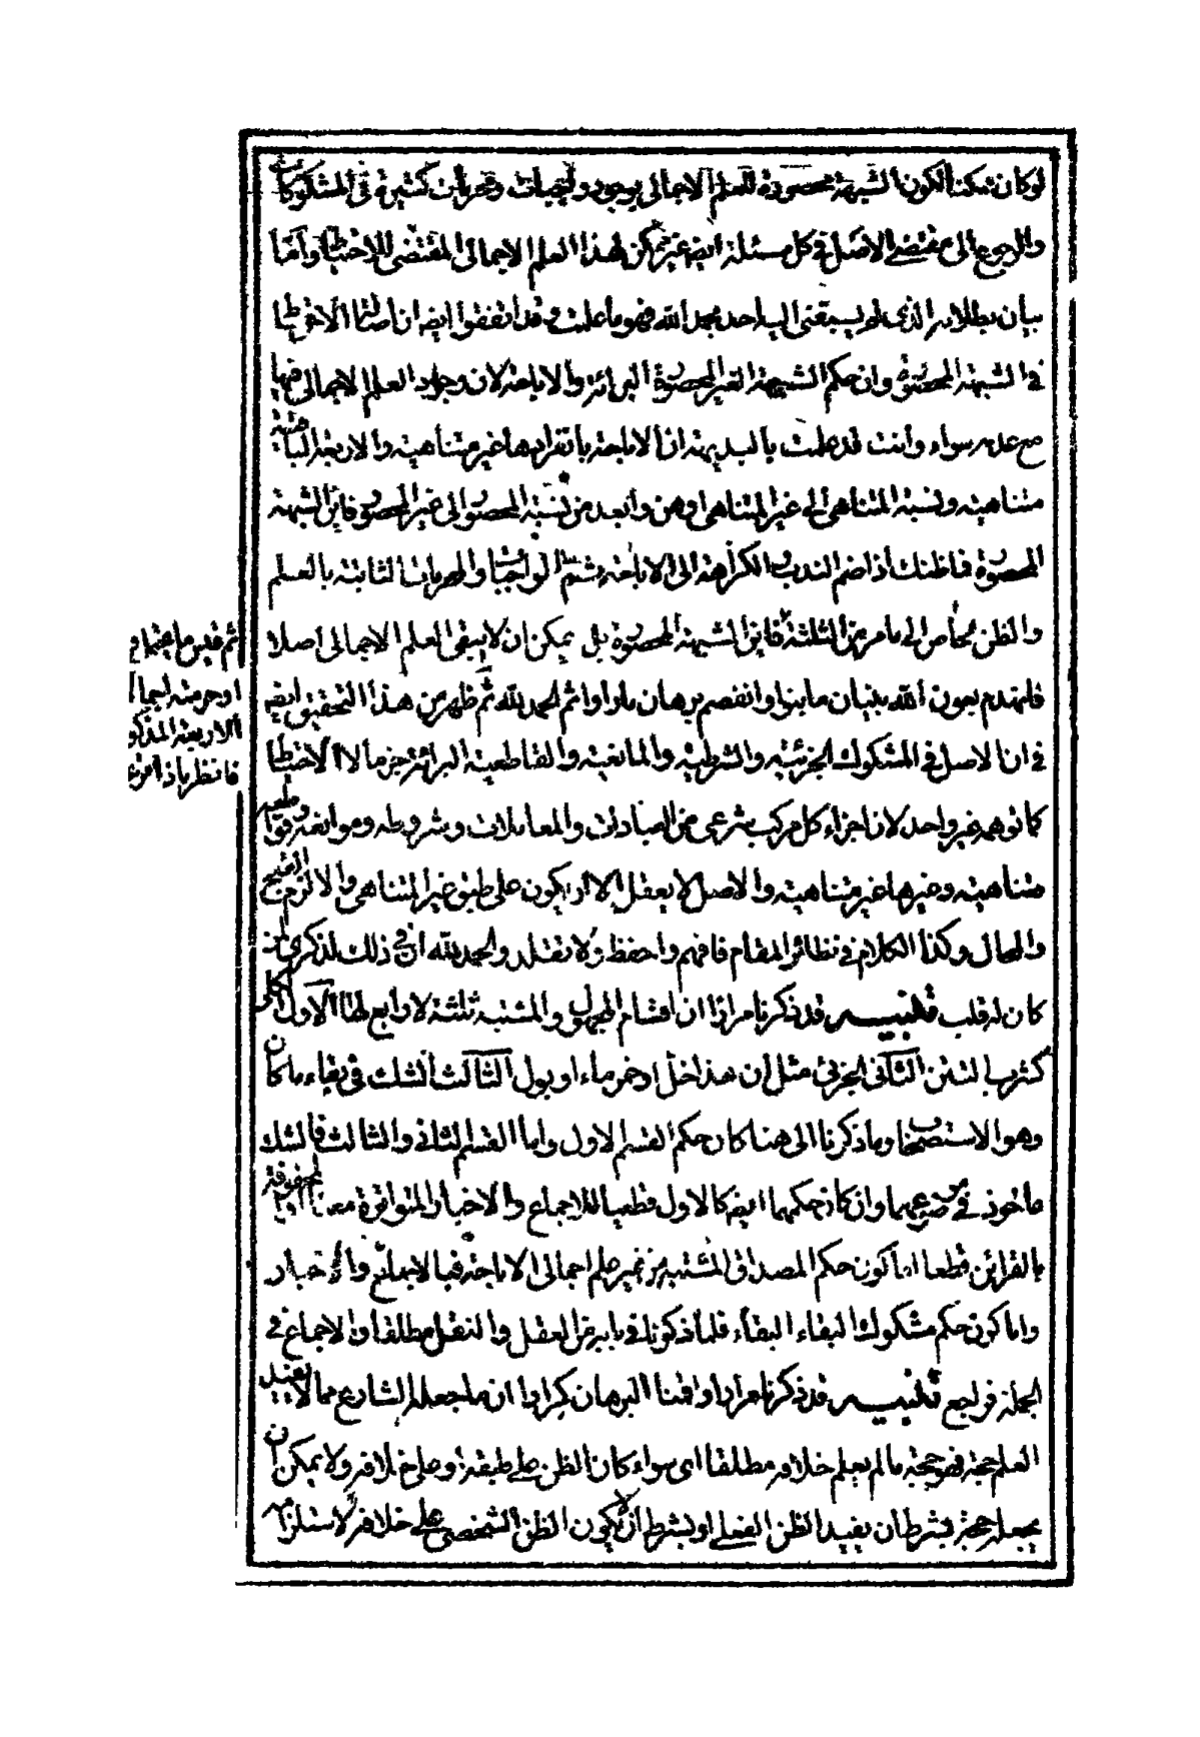 لو كان ممكنا لكون الشبهة محصورة للعلم الاجمالي بوجود واجبات ومحرمات كثيرة في المشكوكات
والرجوع الى مقتضى الاصل في كل مسئلة ايضا غير ممكن لهذا العلم الاجمالي المقتضى للاحتياط واما
بيان بطلانه الذي لم يسبقنى اليه احد بحمد الله فهو ما علمت وقد اتفقوا ايضا ان اصالة الاحتياط
في الشبهة المحصورة وان حكم الشبهة الغير المحصورة البرائة والاباحة لان وجود العلم الاجمالي فيها
مع عدمه سواء وانت قد علمت بالبديهة ان الاباحة بانفرادها غير متناهية والاربعة الباقية
متناهية ونسبة المتناهى الى غير المتناهى اوهن وابعد من نسبة المحصور الى غير المحصور فاين الشبهة
المحصورة فما ظنك اذا ضم الندب والكراهة الى الاباحة وضم الواجبات والمحرمات الثابتة بالعلم
والظن الخاص الى ما مر من الثلثة فاين الشبهة المحصورة بل يمكن ان لا يبقى العلم الاجمالي اصلا
فانهدم بعون الله بنيان ما بنوا وانفصم برهان ما راوا ثم الحمد لله ثم ظهر من هذا التحقيق ايضا
في ان الاصل في المشكوك الجزئية والشرطية والمانعية والقاطعية البرائة جزما لا الاحتياط
كما توهمه غير واحد لان اجزاء كل مركب شرعى من العبادات والمعاملات وشروطه وموانعه وقواطعه
متناهية وغيرها غير متناهية والاصل لا يعقل الا ان يكون على طبق غير المتناهى والا لزم القبيح
والمحال وكذا الكلام في نظائر المقام فافهم واحفظ ولا تقلد والحمد لله ان في ذلك لذكرى لمن
كان له قلب تنبيه قد ذكرنا مرارا ان اقسام المجهول والمشتبه ثلثة لا رابع لها الاول الكلى
كشرب التتن الثانى الجزئى مثل ان هذا خل او خمر ماء او بول الثالث الشك في بقاء ما كان
وهو الاستصحاب وما ذكرنا الى هنا كان حكم القسم الاول واما القسم الثانى والثالث فالشك
ماخوذ في موضوعهما وان كان حكمهما ايضا كالاول قطعيا للاجماع والاخبار المتواترة معنا او المحفوفة
بالقرائن قطعا اما كون حكم المصداق المشتبه من غير علم اجمالى الاباحة فبالاجماع والاخبار
واما كون حكم مشكوك البقاء البقاء فلما ذكرنا في بابه من العقل والنقل مطلقا والاجماع في
الجملة فراجع تنبيه قد ذكرنا مرارا واقمنا البرهان كرارا ان ما جعله الشارع مما لا يفيد
العلم حجة فهو حجة ما لم يعلم خلافه مطلقا اى سواء كان الظن على طبقه او على خلافه ولا يمكن ان
يجعله حجة بشرط ان يفيد الظن الفعلى او بشرط ان لا يكون الظن الشخصى على خلافه لاستلزامه
ثم قس ما عنها
او حرمته اجما
الاربعة المذكو
فانظر ماذا ترى